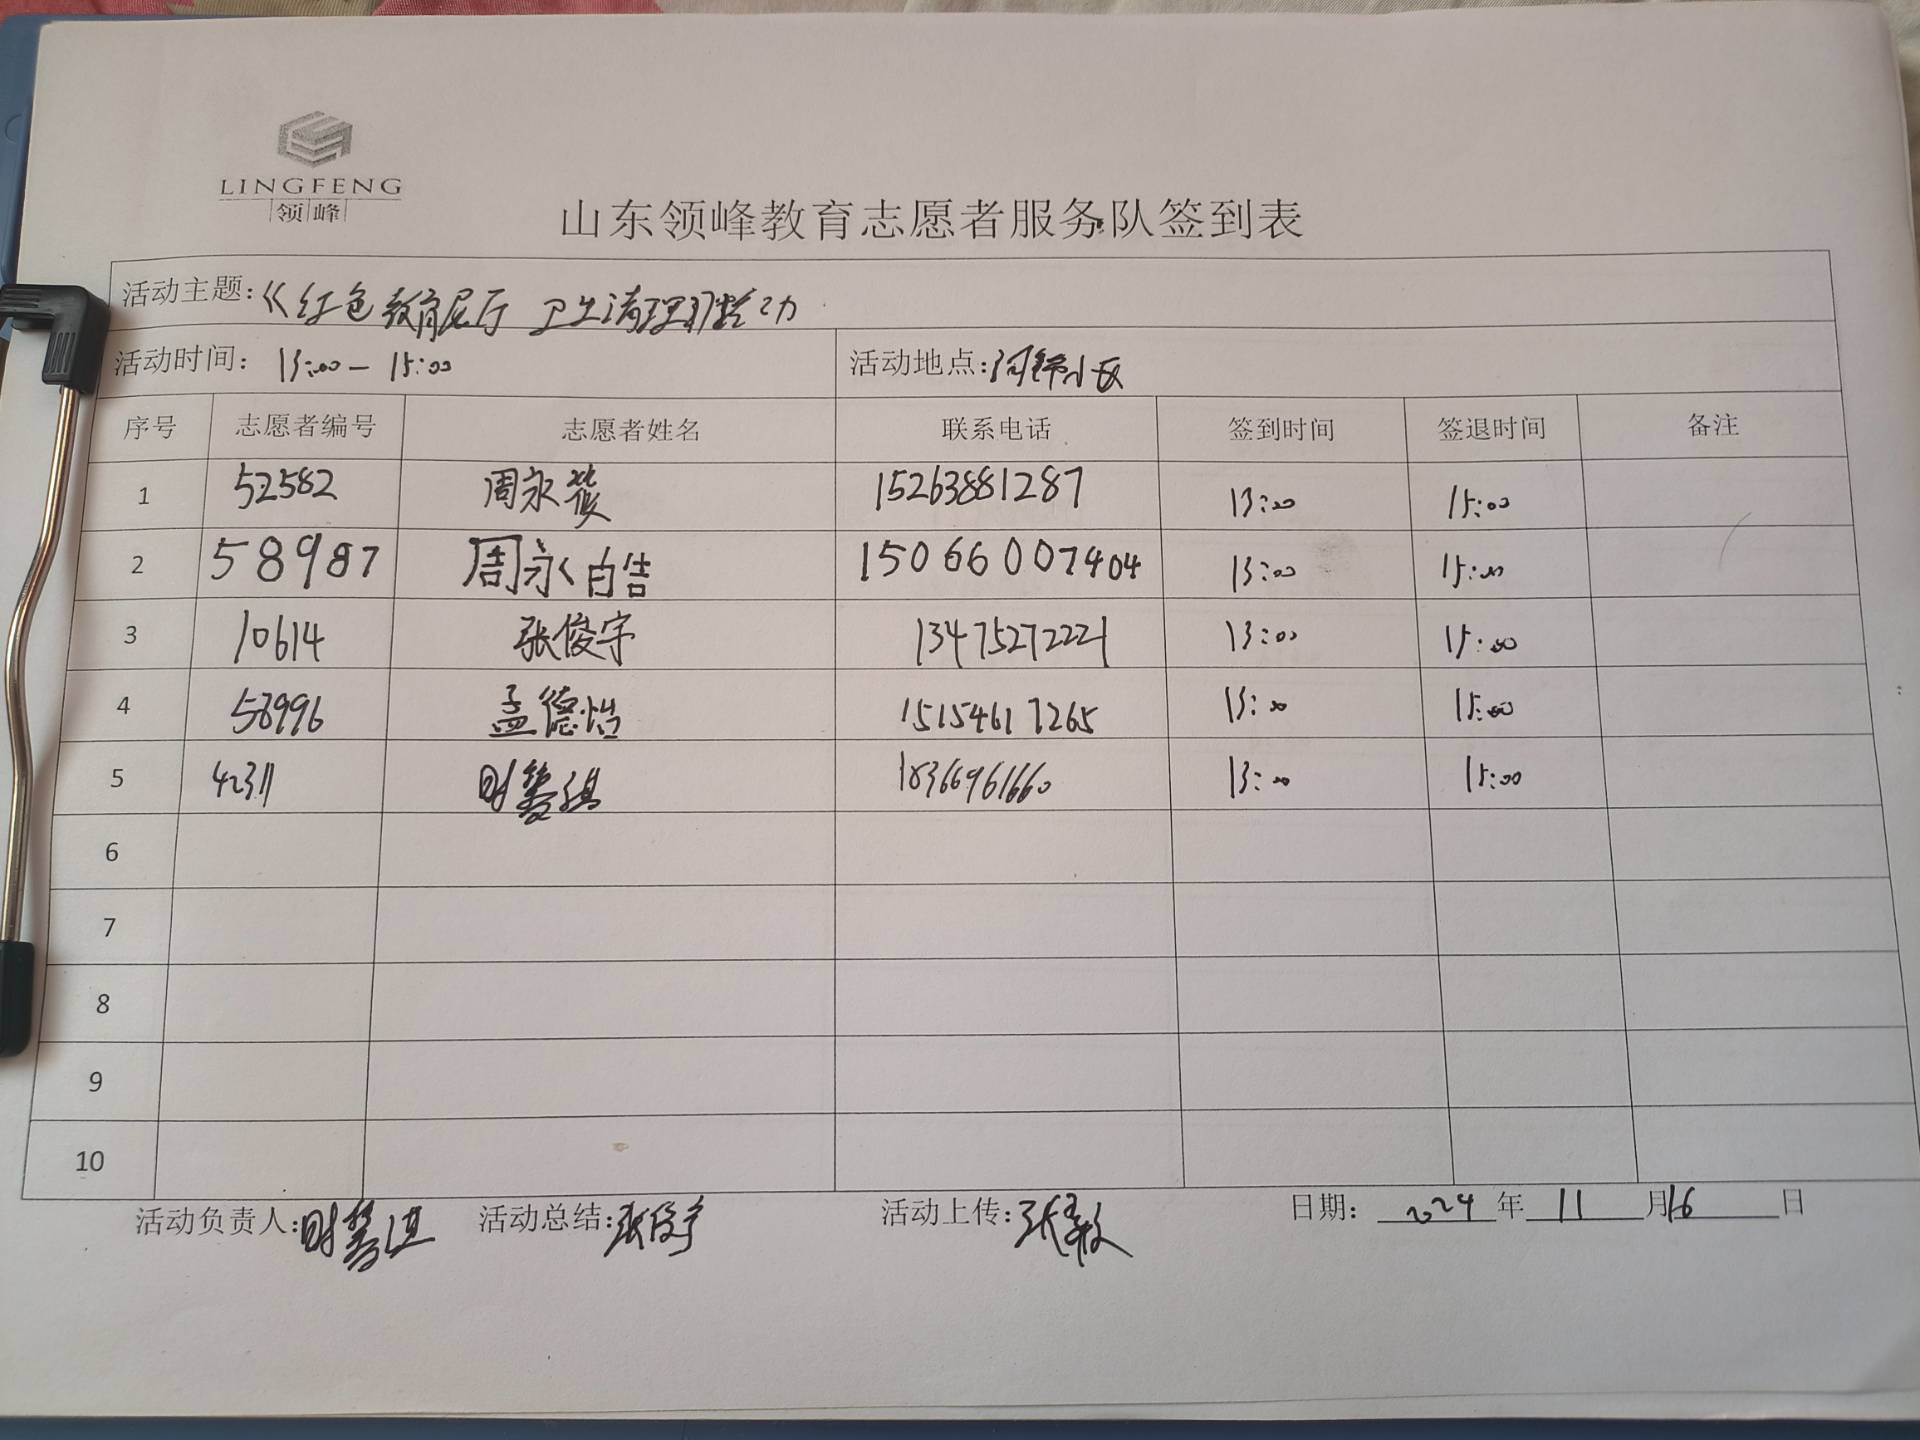 LINGFENG
领峰
山东领峰教育志愿者服务队签到表
活动主题:《红色教育展厅 卫生清理活动
活动时间: 13:00-15:00 活动地点:
序号 志愿者编号 志愿者姓名 联系电话 签到时间 签退时间 备注
1 52582 周永 15263881287 13:00 15:00
2 58987 周永皓 15066007404 13:00 15:00
3 10614 张俊宇 13475272221 13:00 15:00
4 58996 孟德怡 15154617265 13:00 15:00
5 42311 时 18366961660 13:00 15:00
6
7
8
9
10
活动负责人:时 活动总结:张俊宇 活动上传:张 日期: 2024 年 11 月 16 日